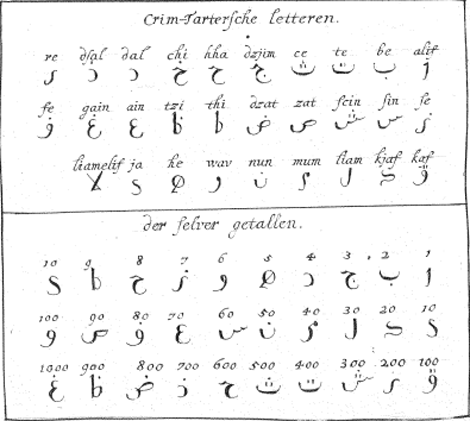 Crim-Tartersche letteren.
re dsal dal chi hha dzjim ce te be alif
ا ب ت ث ج ح خ د ذ ر
fe gain ain tzi thi dzat zat scin sin se
ز س ش ص ض ط ظ ع غ ف
liamelif ja he wav nun mum liam kjaf kaf
ق ك ل م ن و ه ي لا
der selver getallen.
10 9 8 7 6 5 4 3 2 1
ا ب ج د ه و ز ح ط ي
100 90 80 70 60 50 40 30 20 10
ي ك ل م ن س ع ف ص ق
1000 900 800 700 600 500 400 300 200 100
ق ر ش ت ث خ ذ ض ظ غ